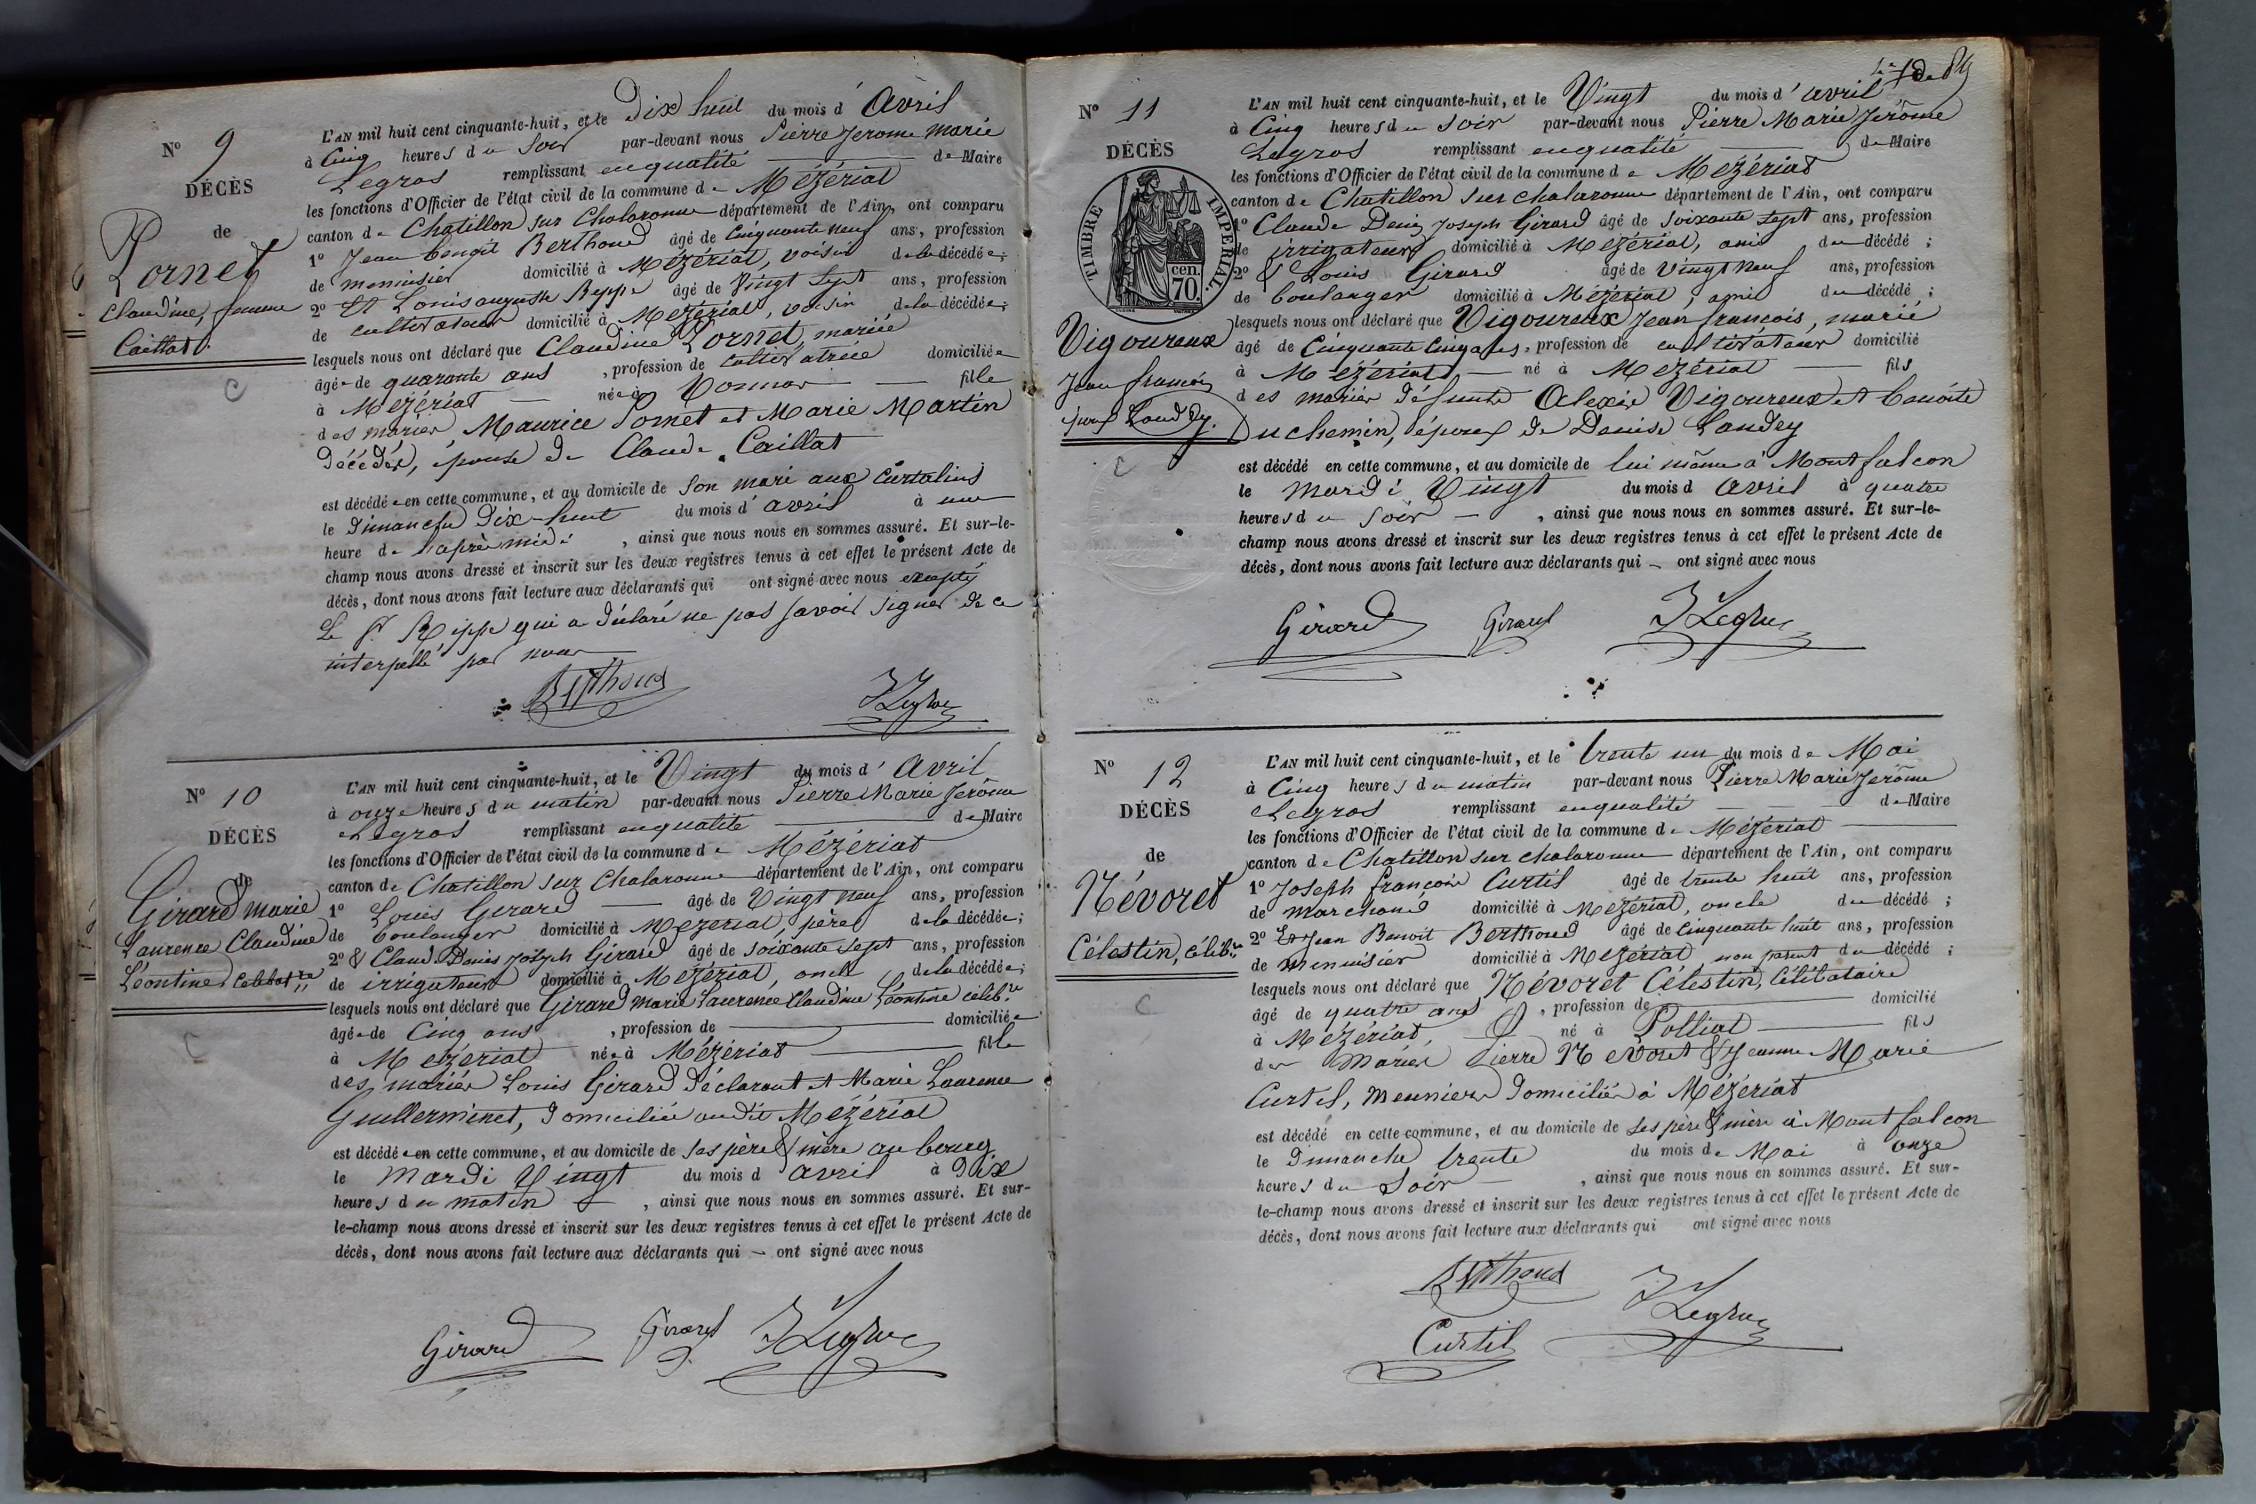 Nº 9
DÉCÈS
de
Pornet
Claudine, femme
Caillat
L'AN mil huit cent cinquante-huit, et le Dix huit du mois d' Avril
à Cinq heures du Soir par-devant nous Pierre Jerome Marie
Legros remplissant en qualité de Maire
les fonctions d'Officier de l'état civil de la commune de Mézériat
canton de Chatillon sur Chalaronne département de l'Ain, ont comparu
1º Jean benoit Berthoud âgé de Cinquante neuf ans, profession
de menuisier domicilié à Mézériat, voisin de la décédée;
2º Et Louis auguste Rippe âgé de Vingt Sept ans, profession
de cultivateur domicilié à Mézériat, voisin de la décédée;
lesquels nous ont déclaré que Claudine Pornet, mariée
âgée de quarante ans, profession de cultivatrice domiciliée
à Mézériat née à Vonnas fille
des mariés, Maurice Pornet et Marie Martin
décédés, épouse de Claude Caillat
est décédée en cette commune, et au domicile de son mari aux Curtalins
le Dimanche Dix-huit du mois d' avril à une
heure de l'après midi, ainsi que nous nous en sommes assuré. Et sur-le-
champ nous avons dressé et inscrit sur les deux registres tenus à cet effet le présent Acte de
décès, dont nous avons fait lecture aux déclarants qui ont signé avec nous excepté
Le Sr Rippe qui a déclaré ne pas savoir signer de ce
interpellé par nous
Berthoud JLegros
Nº 10
DÉCÈS
de
Girard marie
Laurence Claudine
Léontine Célibatre
L'AN mil huit cent cinquante-huit, et le Vingt du mois d' Avril
à onze heures du matin par-devant nous Pierre Marie Jerôme
Legros remplissant en qualité de Maire
les fonctions d'Officier de l'état civil de la commune de Mézériat
canton de Chatillon sur Chalaronne département de l'Ain, ont comparu
1º Louis Girard âgé de Vingt neuf ans, profession
de boulanger domicilié à Mézériat, père de la décédée;
2º & Claude Denis Joseph Girard âgé de Soixante Sept ans, profession
de irrigateur domicilié à Mézériat, oncle de la décédée;
lesquels nous ont déclaré que Girard Marie Laurence Claudine Léontine célibre
âgée de Cinq ans, profession de domiciliée
à Mézériat née à Mézériat fille
des mariés Louis Girard déclarant et Marie Laurence
Guillerminet, domiciliés audit Mézériat
est décédée en cette commune, et au domicile de ses père & mère au bourg
le mardi Vingt du mois d avril à Dix
heures du matin, ainsi que nous nous en sommes assuré. Et sur-
le-champ nous avons dressé et inscrit sur les deux registres tenus à cet effet le présent Acte de
décès, dont nous avons fait lecture aux déclarants qui ont signé avec nous
Girard Girard JLegros
Nº 11
DÉCÈS
TIMBRE IMPERIAL
cen.
70.
Vigoureux
Jean françois
époux Landey.
L'AN mil huit cent cinquante-huit, et le Vingt du mois d' avril
à Cinq heures du Soir par-devant nous Pierre Marie Jerôme
Legros remplissant en qualité de Maire
les fonctions d'Officier de l'état civil de la commune de Mézériat
canton de Chatillon sur chalaronne département de l'Ain, ont comparu
1º Claude Denis Joseph Girard âgé de Soixante Sept ans, profession
de irrigateur domicilié à Mézériat, ami du décédé;
2º & Louis Girard âgé de vingt neuf ans, profession
de boulanger domicilié à Mézériat, ami du décédé;
lesquels nous ont déclaré que Vigoureux Jean françois, marié
âgé de Cinquante Cinq ans, profession de cultivateur domicilié
à Mézériat né à Mézériat fils
des mariés défunts Alexis Vigoureux et benoite
Duchemin, époux de Denise Landey
est décédé en cette commune, et au domicile de lui même à Montfalcon
le mardi Vingt du mois d avril à quatre
heures du Soir, ainsi que nous nous en sommes assuré. Et sur-le-
champ nous avons dressé et inscrit sur les deux registres tenus à cet effet le présent Acte de
décès, dont nous avons fait lecture aux déclarants qui ont signé avec nous
Girard Girard JLegros
Nº 12
DÉCÈS
de
Névoret
Célestin, célibre
L'AN mil huit cent cinquante-huit, et le trente un du mois de Mai
à Cinq heures du matin par-devant nous Pierre Marie Jerôme
Legros remplissant en qualité de Maire
les fonctions d'Officier de l'état civil de la commune de Mézériat
canton de Chatillon sur chalaronne département de l'Ain, ont comparu
1º Joseph françois Curtil âgé de trente huit ans, profession
de marchand domicilié à Mézériat, oncle du décédé;
2º Et Jean Benoit Berthoud âgé de Cinquante huit ans, profession
de menuisier domicilié à Mézériat, non parent du décédé;
lesquels nous ont déclaré que Névoret Célestin, Célibataire
âgé de quatre ans, profession de domicilié
à Mézériat, né à Polliat fils
des Mariés Pierre Névoret & Jeanne Marie
Curtil, meuniers domiciliés à Mézériat
est décédé en cette commune, et au domicile de ses père & mère à Montfalcon
le Dimanche trente du mois de Mai à onze
heures du Soir, ainsi que nous nous en sommes assuré. Et sur-
le-champ nous avons dressé et inscrit sur les deux registres tenus à cet effet le présent Acte de
décès, dont nous avons fait lecture aux déclarants qui ont signé avec nous
Berthoud JLegros
Curtil